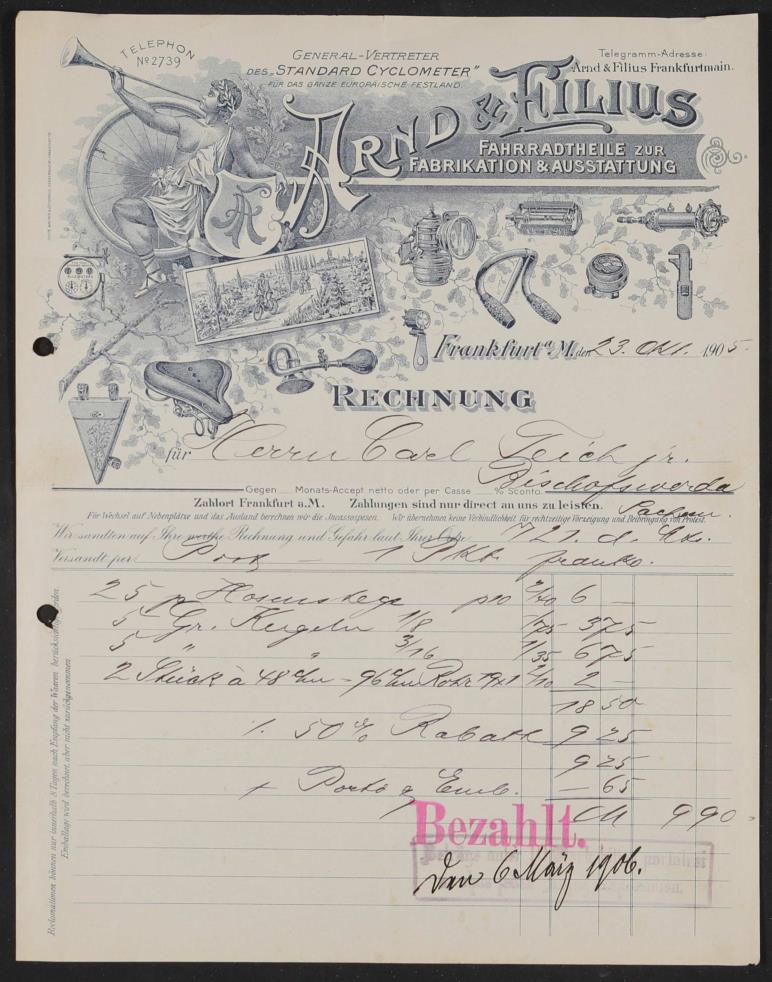 TELEPHON
No 2739
GENERAL-VERTRETER
DES „STANDARD CYCLOMETER"
FÜR DAS GANZE EUROPÄISCHE FESTLAND.
Telegramm-Adresse:
Arnd & Filius Frankfurtmain.
ARND & FILIUS
FAHRRADTHEILE ZUR
FABRIKATION & AUSSTATTUNG
Frankfurt a/M. den 23. Okt. 1905.
RECHNUNG
für Herrn Carl Teich jr.
Bischofswerda
Gegen Monats-Accept netto oder per Casse % Sconto.
Sachsen.
Zahlort Frankfurt a.M. Zahlungen sind nur direct an uns zu leisten.
Für Wechsel auf Nebenplätze und das Ausland berechnen wir die Incassospesen. Wir übernehmen keine Verbindlichkeit für rechtzeitige Vorzeigung und Beibringung von Protest.
Wir sandten auf Ihre werthe Rechnung und Gefahr laut Ihrer 21. d. Mts.
Versandt per Post – 1 Pkt. franko.
25 p Hosen 6 –
5 Gr. Kugeln 1/8 1/75 375
5 " " 3/16 1/35 675
2 Stück à 48 cm – 96 cm Rohr 19x1 2 –
18 50
./. 50% Rabatt 9 25
9 25
+ Porto & Emb. – 65
M 9 90
Bezahlt.
Den 6 März 1906.
Reclamationen können nur innerhalb 8 Tagen nach Empfang der Waaren berücksichtigt werden.
Emballage wird berechnet, aber nicht zurückgenommen.